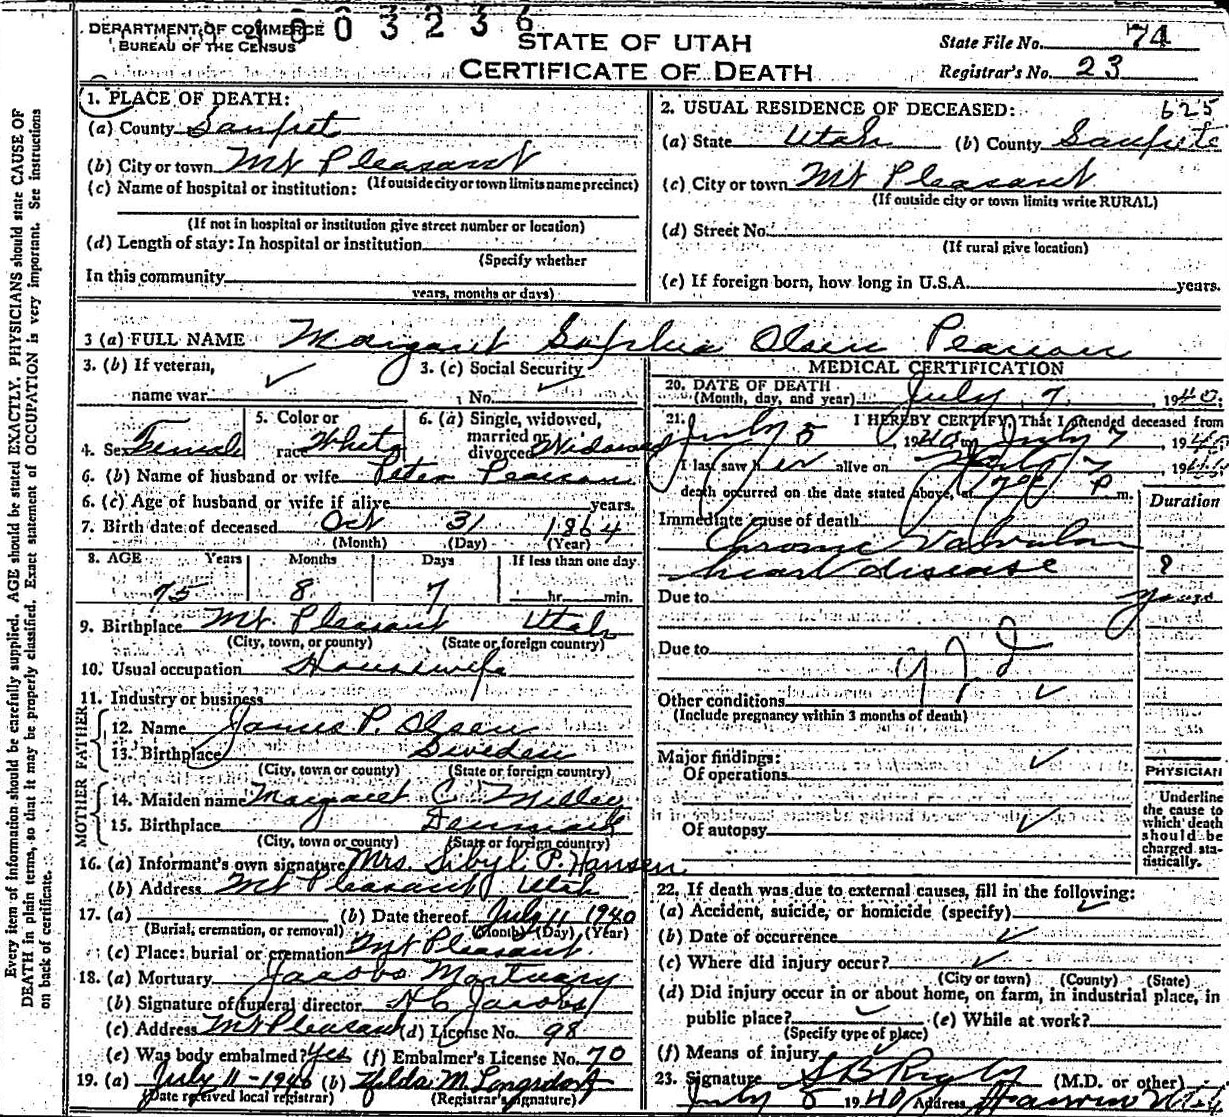 DEPARTMENT OF COMMERCE
BUREAU OF THE CENSUS
003236
STATE OF UTAH
CERTIFICATE OF DEATH
State File No. 74
Registrar's No. 23
Every item of information should be carefully supplied. AGE should be stated EXACTLY. PHYSICIANS should state CAUSE OF
DEATH in plain terms, so that it may be properly classified. Exact statement of OCCUPATION is very important. See instructions
on back of certificate.
1. PLACE OF DEATH:
(a) County Sanpete
(b) City or town Mt Pleasant
(If outside city or town limits name precinct)
(c) Name of hospital or institution:
(If not in hospital or institution give street number or location)
(d) Length of stay: In hospital or institution
(Specify whether
In this community
years, months or days)
2. USUAL RESIDENCE OF DECEASED: 625
(a) State Utah (b) County Sanpete
(c) City or town Mt Pleasant
(If outside city or town limits write RURAL)
(d) Street No.
(If rural give location)
(e) If foreign born, how long in U.S.A. years.
3 (a) FULL NAME Margaret Sophia Olsen Pearson
3. (b) If veteran,
name war ✓
3. (c) Social Security
No. ✓
4. Sex Female
5. Color or
race White
6. (a) Single, widowed,
married or
divorced Widowed
6. (b) Name of husband or wife Peter Pearson
6. (c) Age of husband or wife if alive years.
7. Birth date of deceased Oct 31 1864
(Month) (Day) (Year)
8. AGE Years Months Days If less than one day
75 8 7 hr. min.
9. Birthplace Mt. Pleasant Utah
(City, town, or county) (State or foreign country)
10. Usual occupation Housewife
11. Industry or business
FATHER
12. Name James P. Olsen
13. Birthplace Sweden
(City, town or county) (State or foreign country)
MOTHER
14. Maiden name Margaret C
15. Birthplace Denmark
(City, town or county) (State or foreign country)
16. (a) Informant's own signature Mrs. Sibyl P. Hansen
(b) Address Mt Pleasant Utah
17. (a) (b) Date thereof July 11 1940
(Burial, cremation, or removal) (Month) (Day) (Year)
(c) Place: burial or cremation Mt Pleasant
18. (a) Mortuary Jacobs Mortuary
(b) Signature of funeral director H C Jacobs
(c) Address Mt Pleasant (d) License No. 98
(e) Was body embalmed? Yes (f) Embalmer's License No. 70
19. (a) July 11-1940 (b) Hilda M. Longsdorf
(Date received local registrar) (Registrar's signature)
MEDICAL CERTIFICATION
20. DATE OF DEATH
(Month, day, and year) July 7, 1940.
21. I HEREBY CERTIFY, That I attended deceased from
July 5, 1940 to July 7, 1940
I last saw her alive on July 7, 1940
death occurred on the date stated above, at P m.
Duration
Immediate cause of death
Chronic Valvular
heart disease ?
Due to years
Due to
Other conditions ✓
(Include pregnancy within 3 months of death)
Major findings:
Of operations ✓
Of autopsy ✓
PHYSICIAN
Underline
the cause to
which death
should be
charged sta-
tistically.
22. If death was due to external causes, fill in the following:
(a) Accident, suicide, or homicide (specify) ✓
(b) Date of occurrence ✓
(c) Where did injury occur? ✓
(City or town) (County) (State)
(d) Did injury occur in or about home, on farm, in industrial place, in
public place? ✓ (e) While at work?
(Specify type of place)
(f) Means of injury ✓
23. Signature S B Rigby (M.D. or other)
July 8 1940 Address Utah